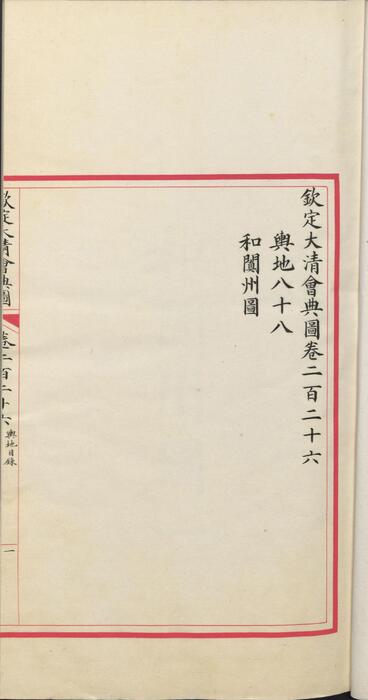 欽定大清會典圖卷二百二十六
輿地八十八
和闐州圖
欽定大清會典圖
卷二百二十六
輿地目錄
一